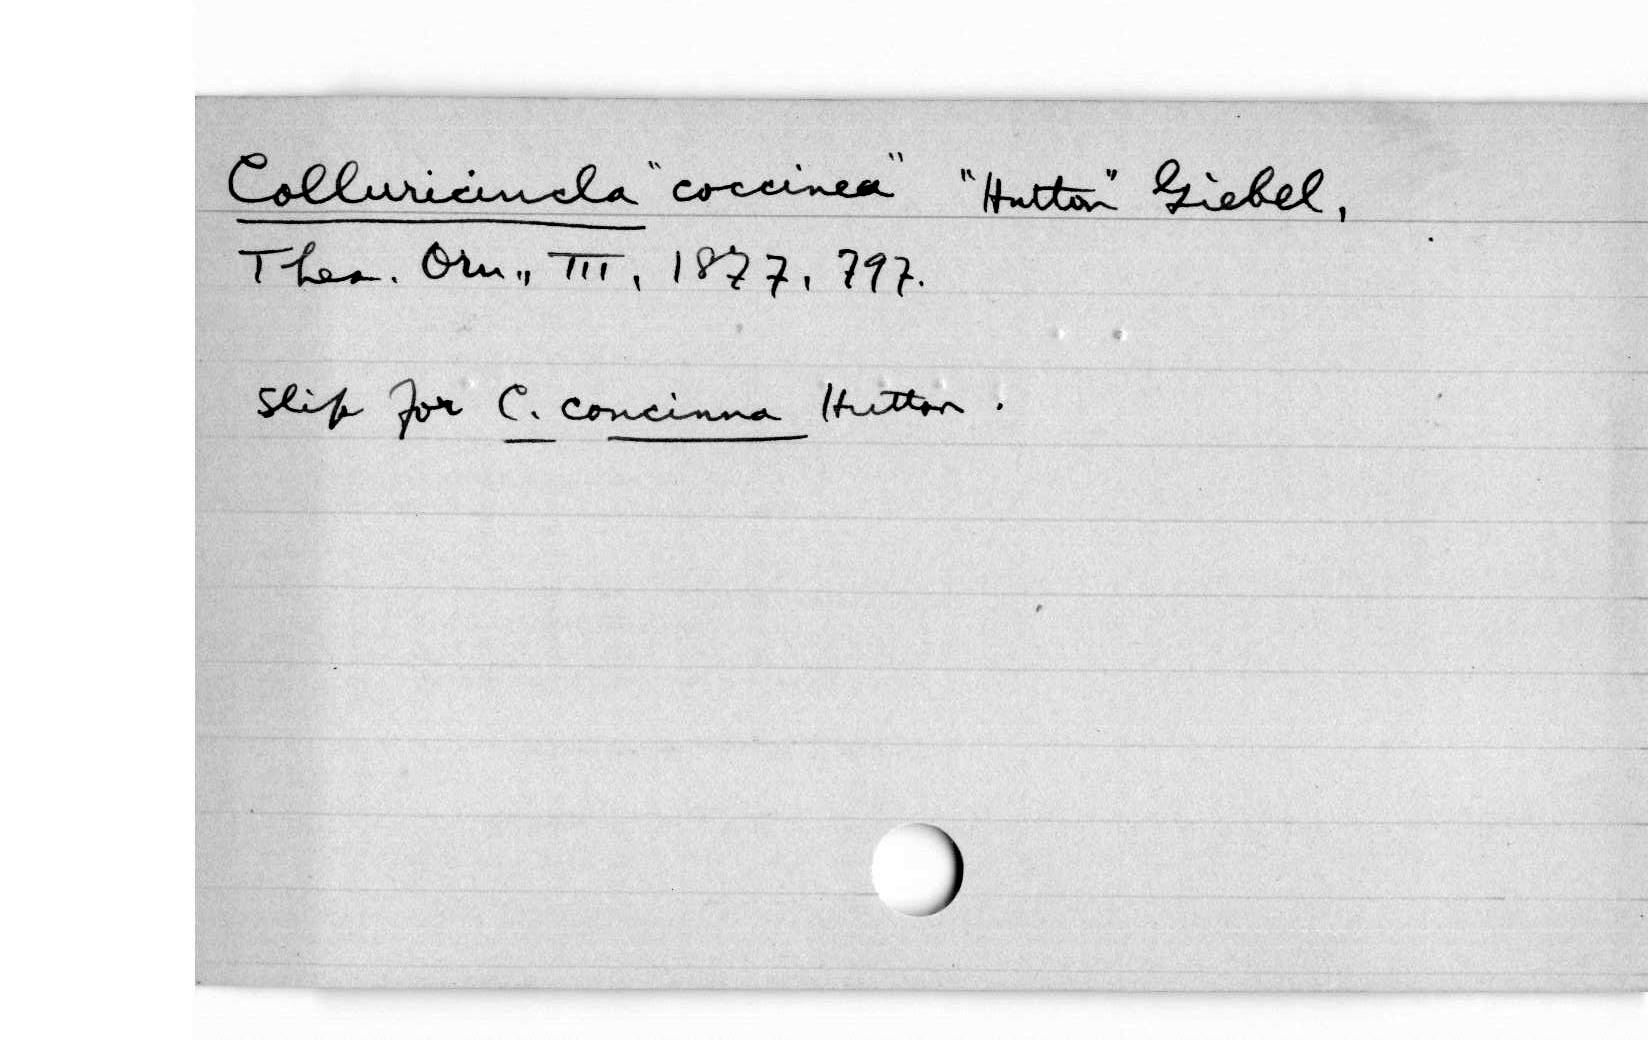 Colluricincla "coccinea" "Hutton" Giebel,
Thes. Orn., III, 1877, 797.
slip for C. concinna Hutton.